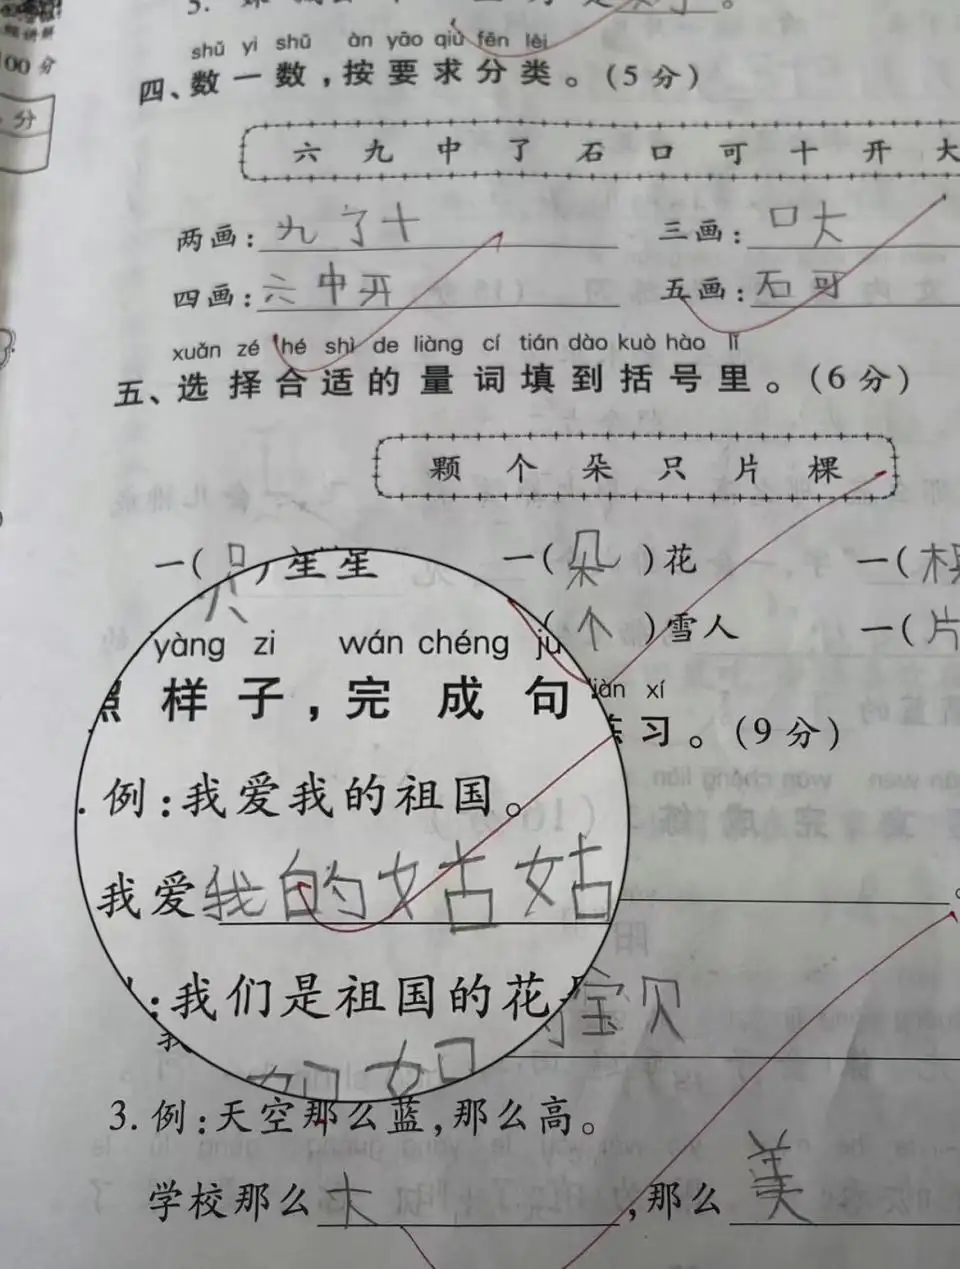 00分
分
shǔ yi shǔ àn yāo qiú fēn lèi
四、数一数，按要求分类。（5分）
六 九 中 了 石 口 可 十 开 大
两画：九了十 三画：口大
四画：六中开 五画：石可
xuǎn zé hé shì de liàng cí tián dào kuò hào lǐ
五、选择合适的量词填到括号里。（6分）
颗 个 朵 只 片 棵
一（只）星星 一（朵）花 一（棵
（个）雪人 一（片
yàng zi wán chéng jù liàn xí
照样子，完成句练习。（9分）
例：我爱我的祖国。
我爱我的姑姑
：我们是祖国的花
宝贝
3. 例：天空那么蓝，那么高。
学校那么大，那么美